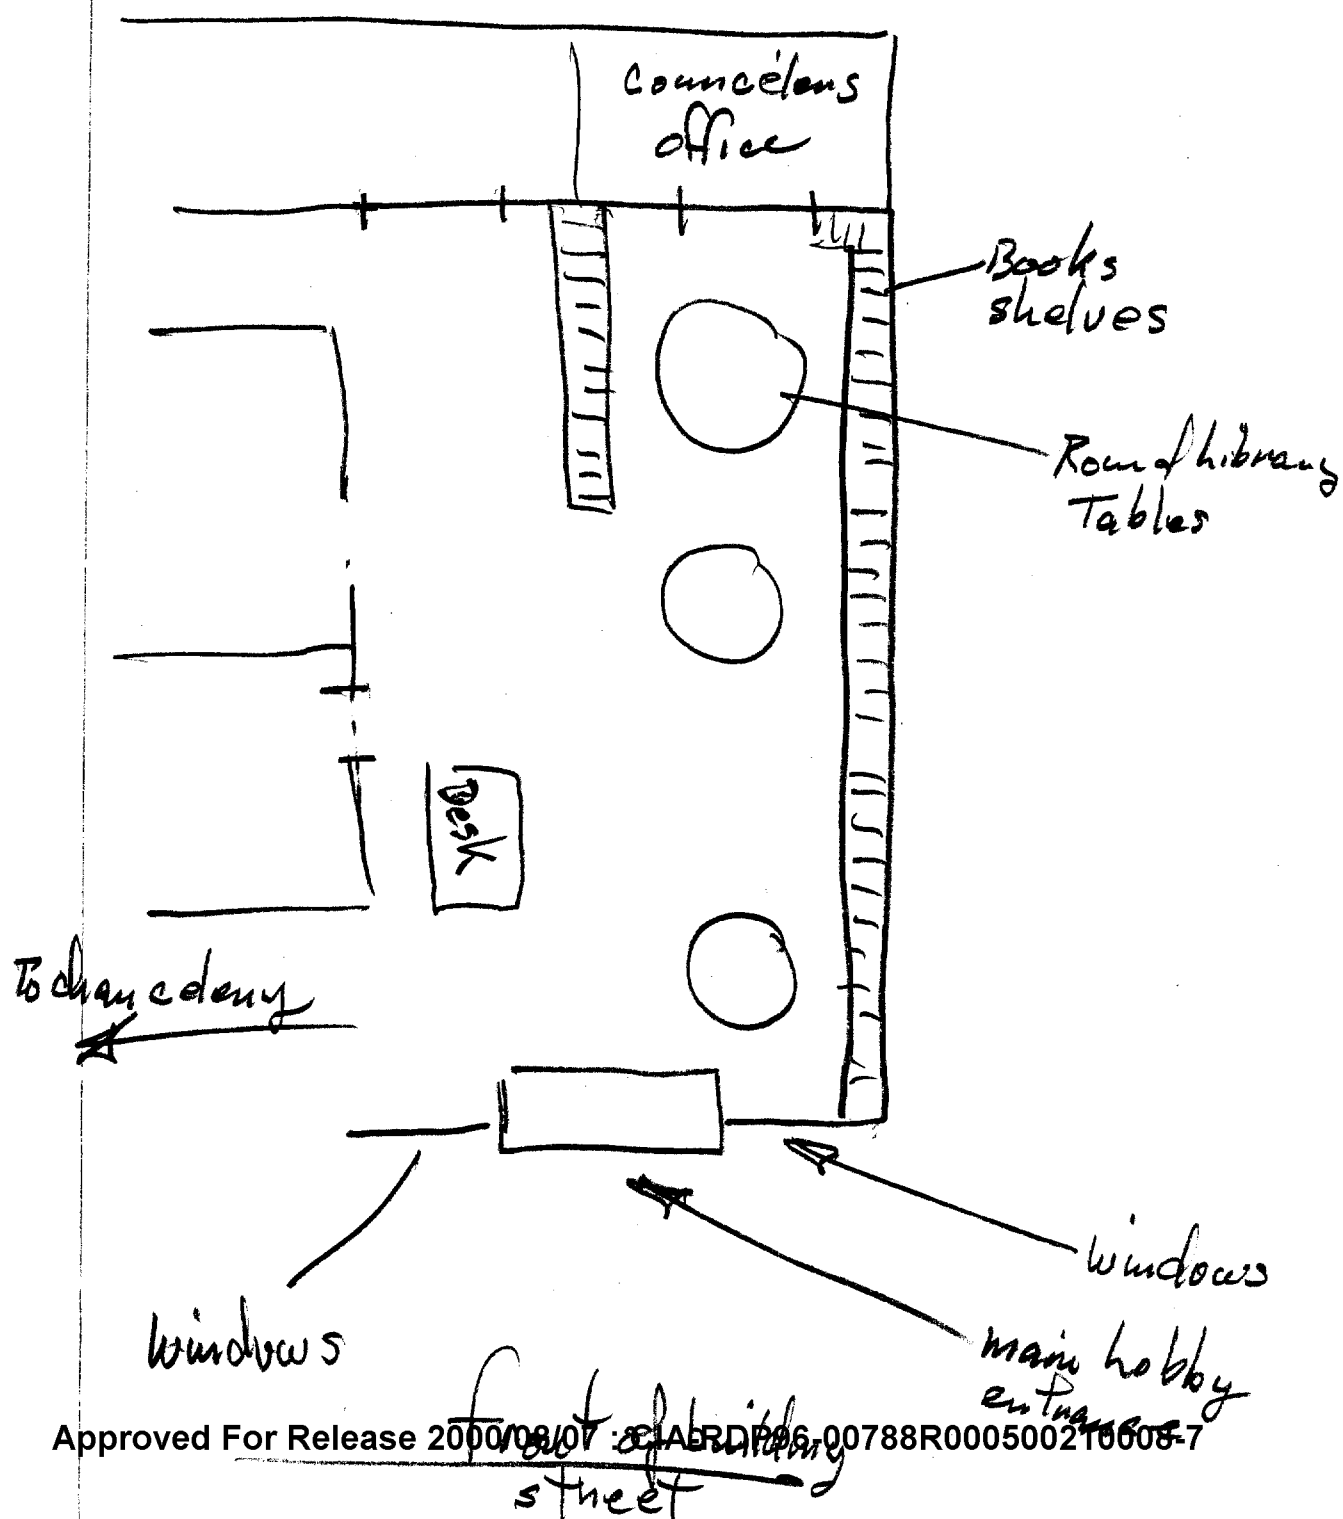 Councelors
office
Books
shelves
Round Library
Tables
Desk
To chancelery
windows
windows
main Lobby
entrance
front of building
Approved For Release 2000/08/07 : CIA-RDP96-00788R000500210008-7
street